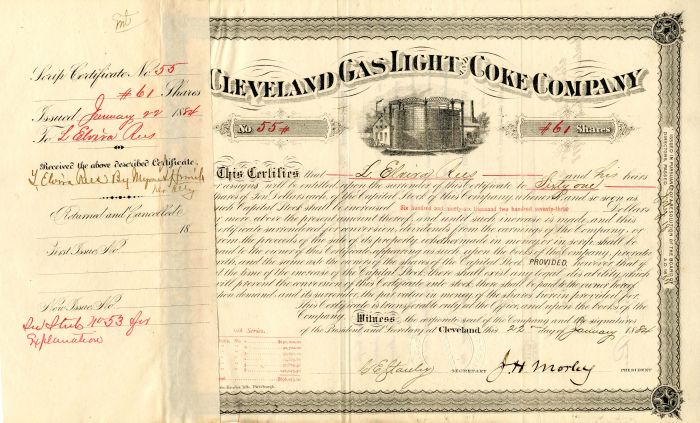 Scrip Certificate No. 55
#61 Shares
Issued January 22 1884
To L Elvira Rees
Received the above described Certificate.
L Elvira Rees By
Returned and Cancelled
18
First Issue No.
New Issue No.
See Stub No 53 for
Explanation
CLEVELAND GAS LIGHT AND COKE COMPANY
No 55
#61 Shares
This Certifies that L Elvira Rees and his heirs
or assigns will be entitled upon the surrender of this Certificate to Sixty one
Shares of Ten Dollars each, of the Capital Stock of this Company whenever and so soon as
such Capital Stock shall be increased Six hundred and ninety-six thousand two hundred seventy-three Dollars
or more above the present amount thereof, and until such increase is made and this
Certificate surrendered for conversion, dividends from the earnings of the Company, or
from the proceeds of the sale of its property, whether made in money or in scrip shall be
paid to the owner of this Certificate appearing as such upon the books of the Company, prorate
with, and the same as to the owners of the shares of the Capital Stock PROVIDED, however that if
at the time of the increase of the Capital Stock there shall exist any legal disability which
will prevent the conversion of this Certificate into stock there shall be paid to the owner hereof
when demand, and its surrender, the par value in money of the shares herein provided for
This Certificate is transferable only at the Office, and upon the books of the
Company.
Witness, the corporate seal of the Company and the signatures
of the President and Secretary at Cleveland, this 22 day of January 1884
Series.
C E Stanley SECRETARY J. H. Morley PRESIDENT